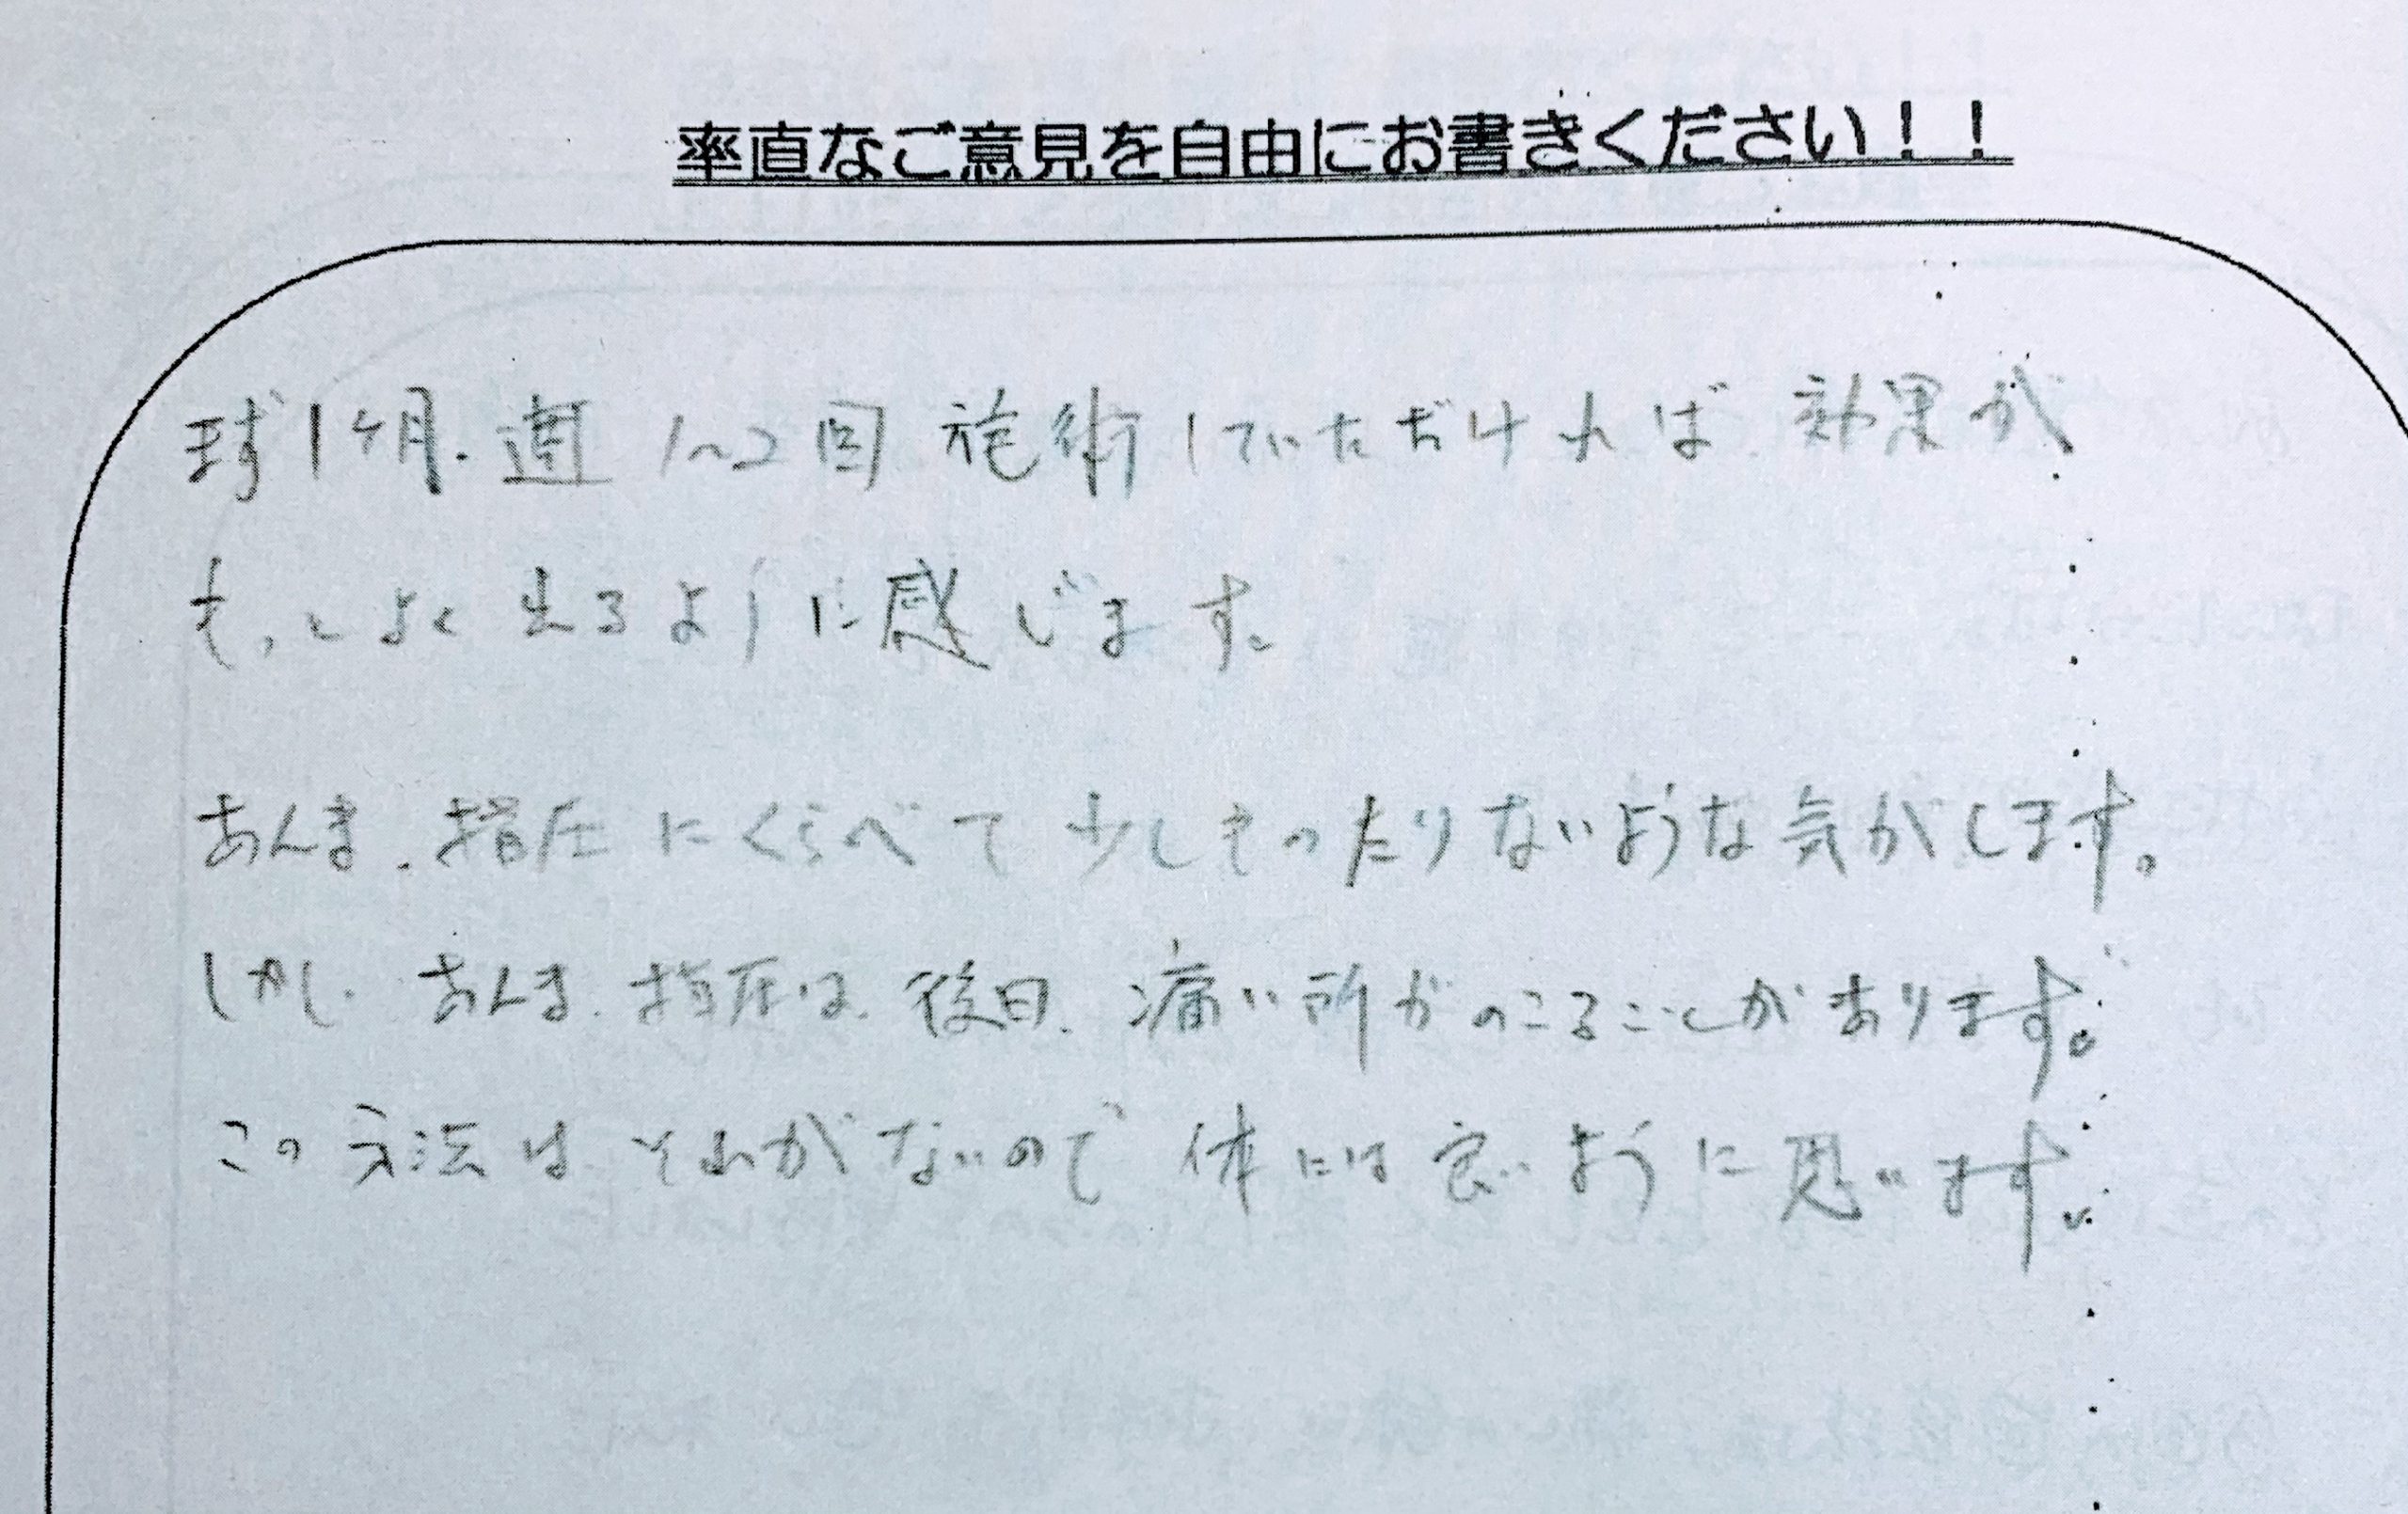 率直なご意見を自由にお書きください！！
まず1ヶ月．週1〜2回 施術していただければ 効果が
もっとよく出るように感じます。
あんま．指圧にくらべて少しものたりないような気がします。
しかし あんま．指圧は 後日．痛い所がのこることがあります。
この方法は それがないので 体には良いように思います。